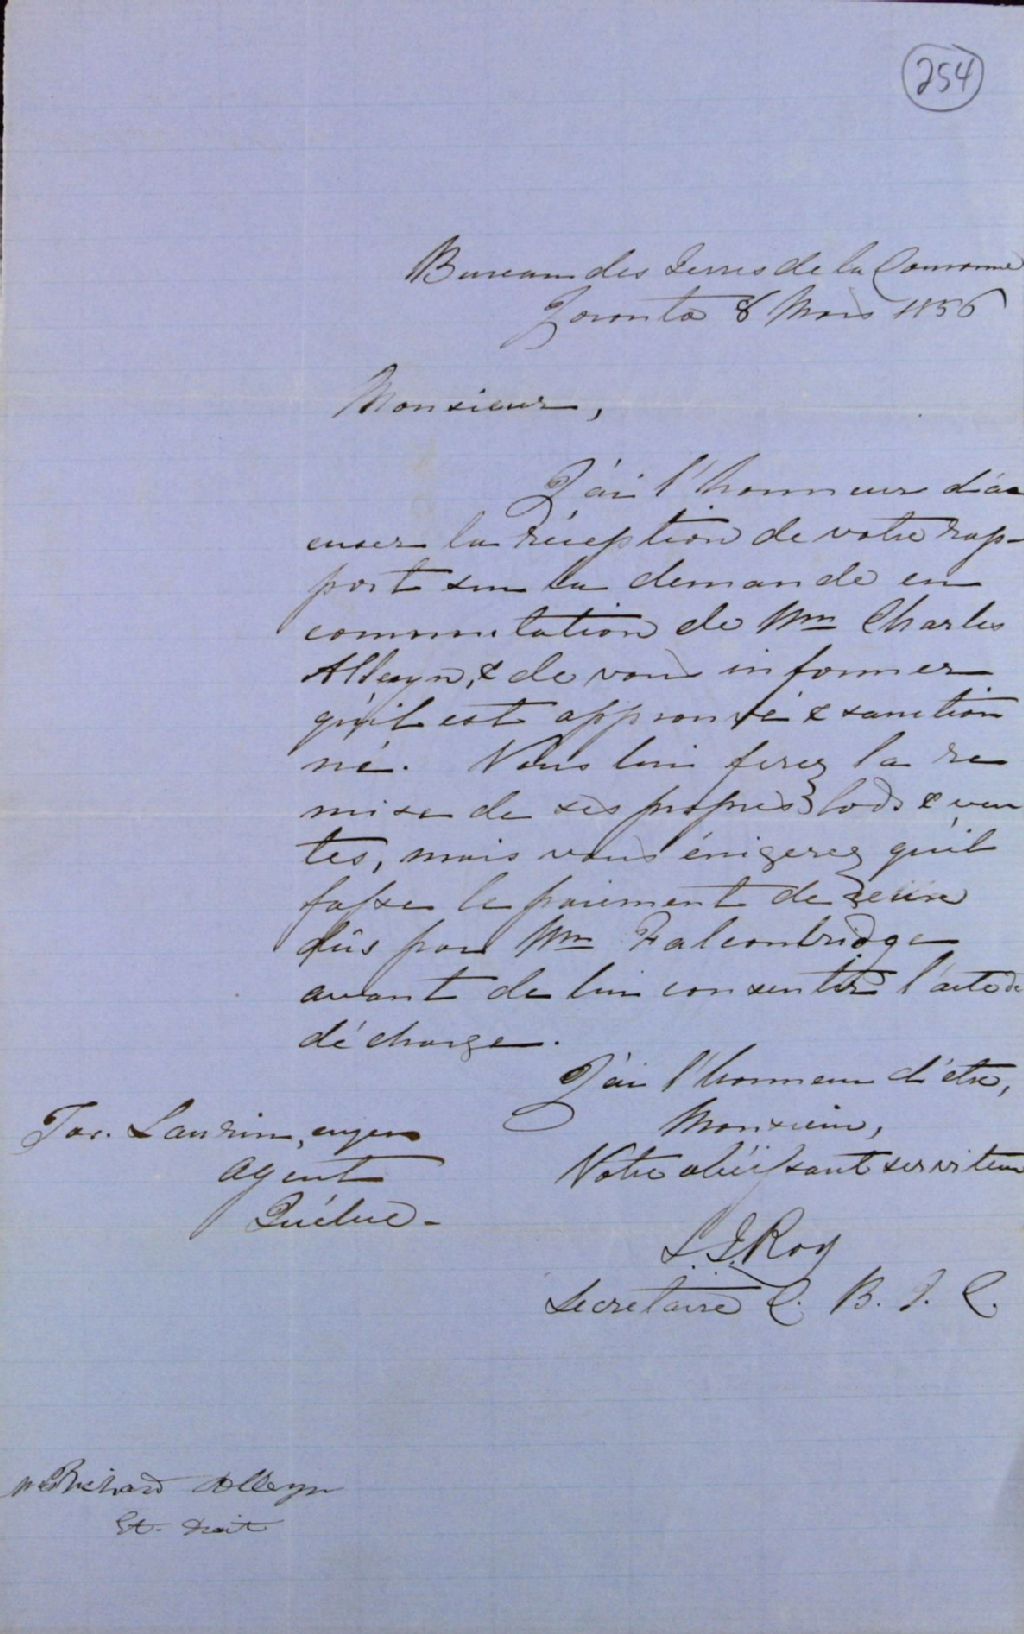 254
Bureau des Terres de la Couronne
Toronto 8 Mars 1856
Monsieur,
J'ai l'honneur d'ac
cuser la réception de votre rap-
port sur la demande en
commutation de Mr Charles
Alleyn, & de vous informer
qu'il est approuvé & sanction
né. Vous lui ferez la re
mise de ses propres lods & ven
tes, mais vous éxigerez qu'il
fasse le paiement de ceux
dûs par Mr Falconbridge
avant de lui consentir l'acte de
décharge.
J'ai l'honneur d'être,
Monsieur,
Votre obéissant serviteur
Jos. Laurin,
agent
Québec -
Roy
Secrétaire C. B. T. C.
Richard Alleyn
Et. droit